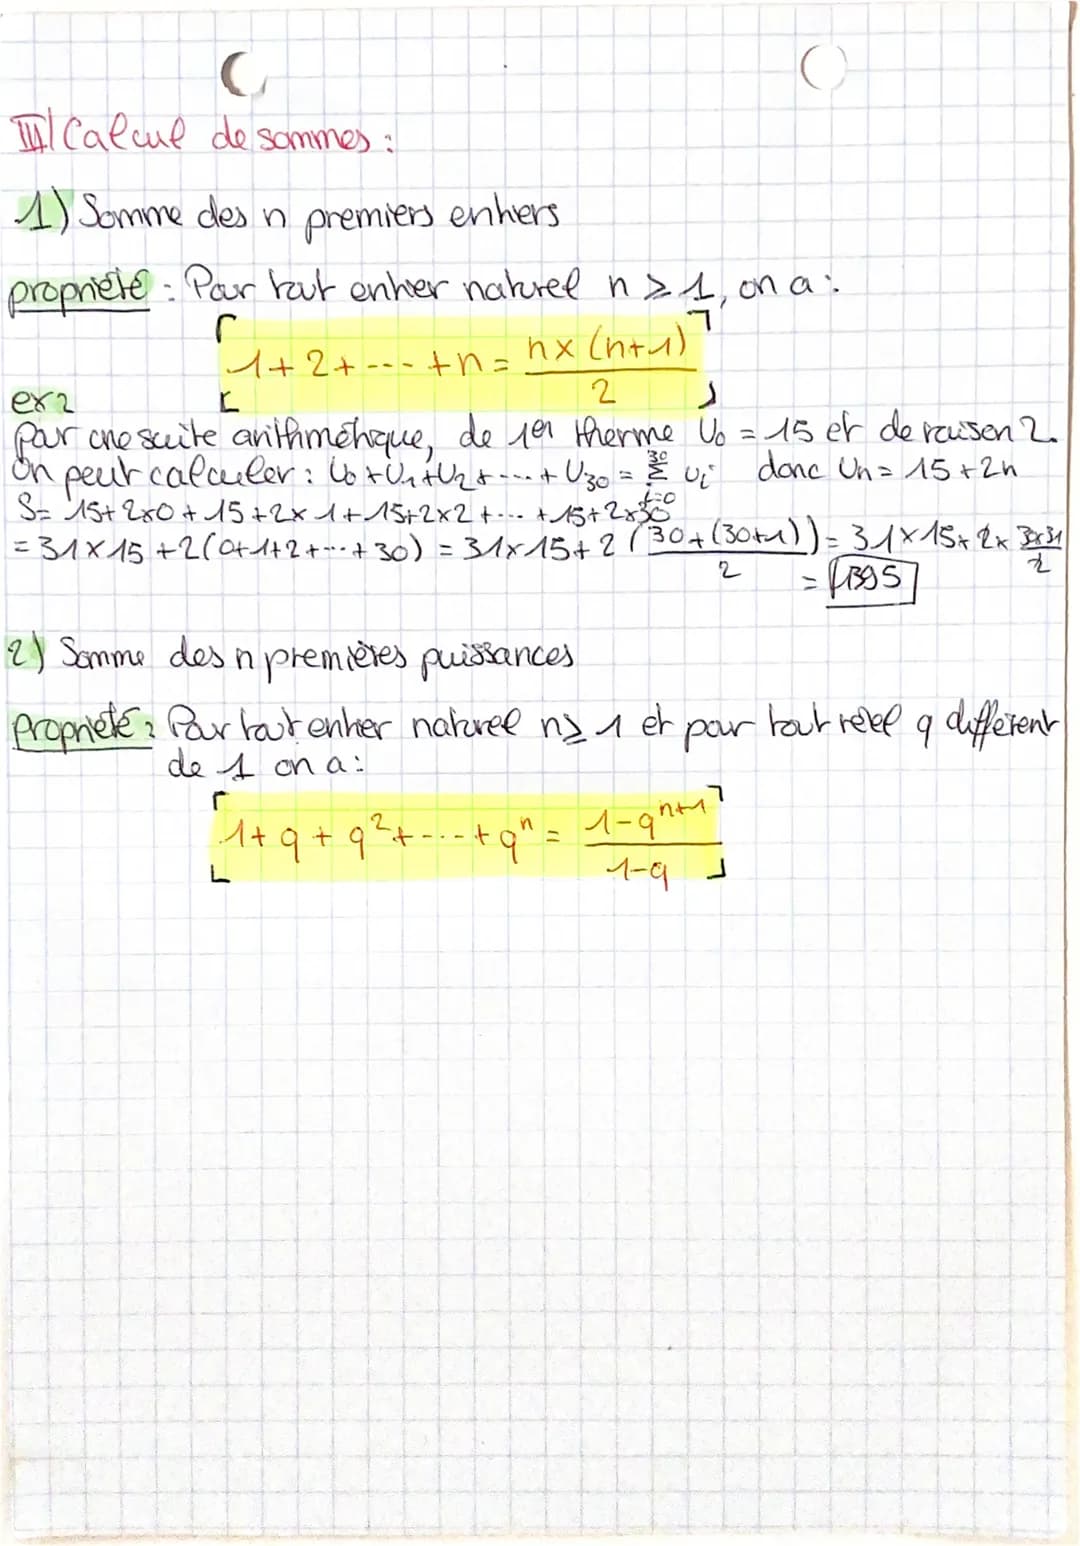 III/ Calcul de sommes :
1) Somme des n premiers entiers
propriété : Pour tout entier naturel n ≥ 1, on a :
1+2+---+n = n×(n+1)/2
ex :
Pour une suite arithmétique, de 1er therme U₀ = 15 et de raison 2.
On peut calculer : U₀+U₁+U₂+---+U₃₀ = Σ³⁰ᵢ₌₀ Uᵢ donc Un = 15+2n
S= 15+2×0+15+2×1+15+2×2+--- +15+2×30
= 31×15+2(0+1+2+---+30) = 31×15+2(30+(30+1)/2) = 31×15+2×30×31/2
= 1395
2) Somme des n premières puissances
Propriété : Pour tout entier naturel n≥1 et pour tout réel q différent
de 1 on a :
1+q+q²+---+qⁿ = 1-qⁿ⁺¹/1-q